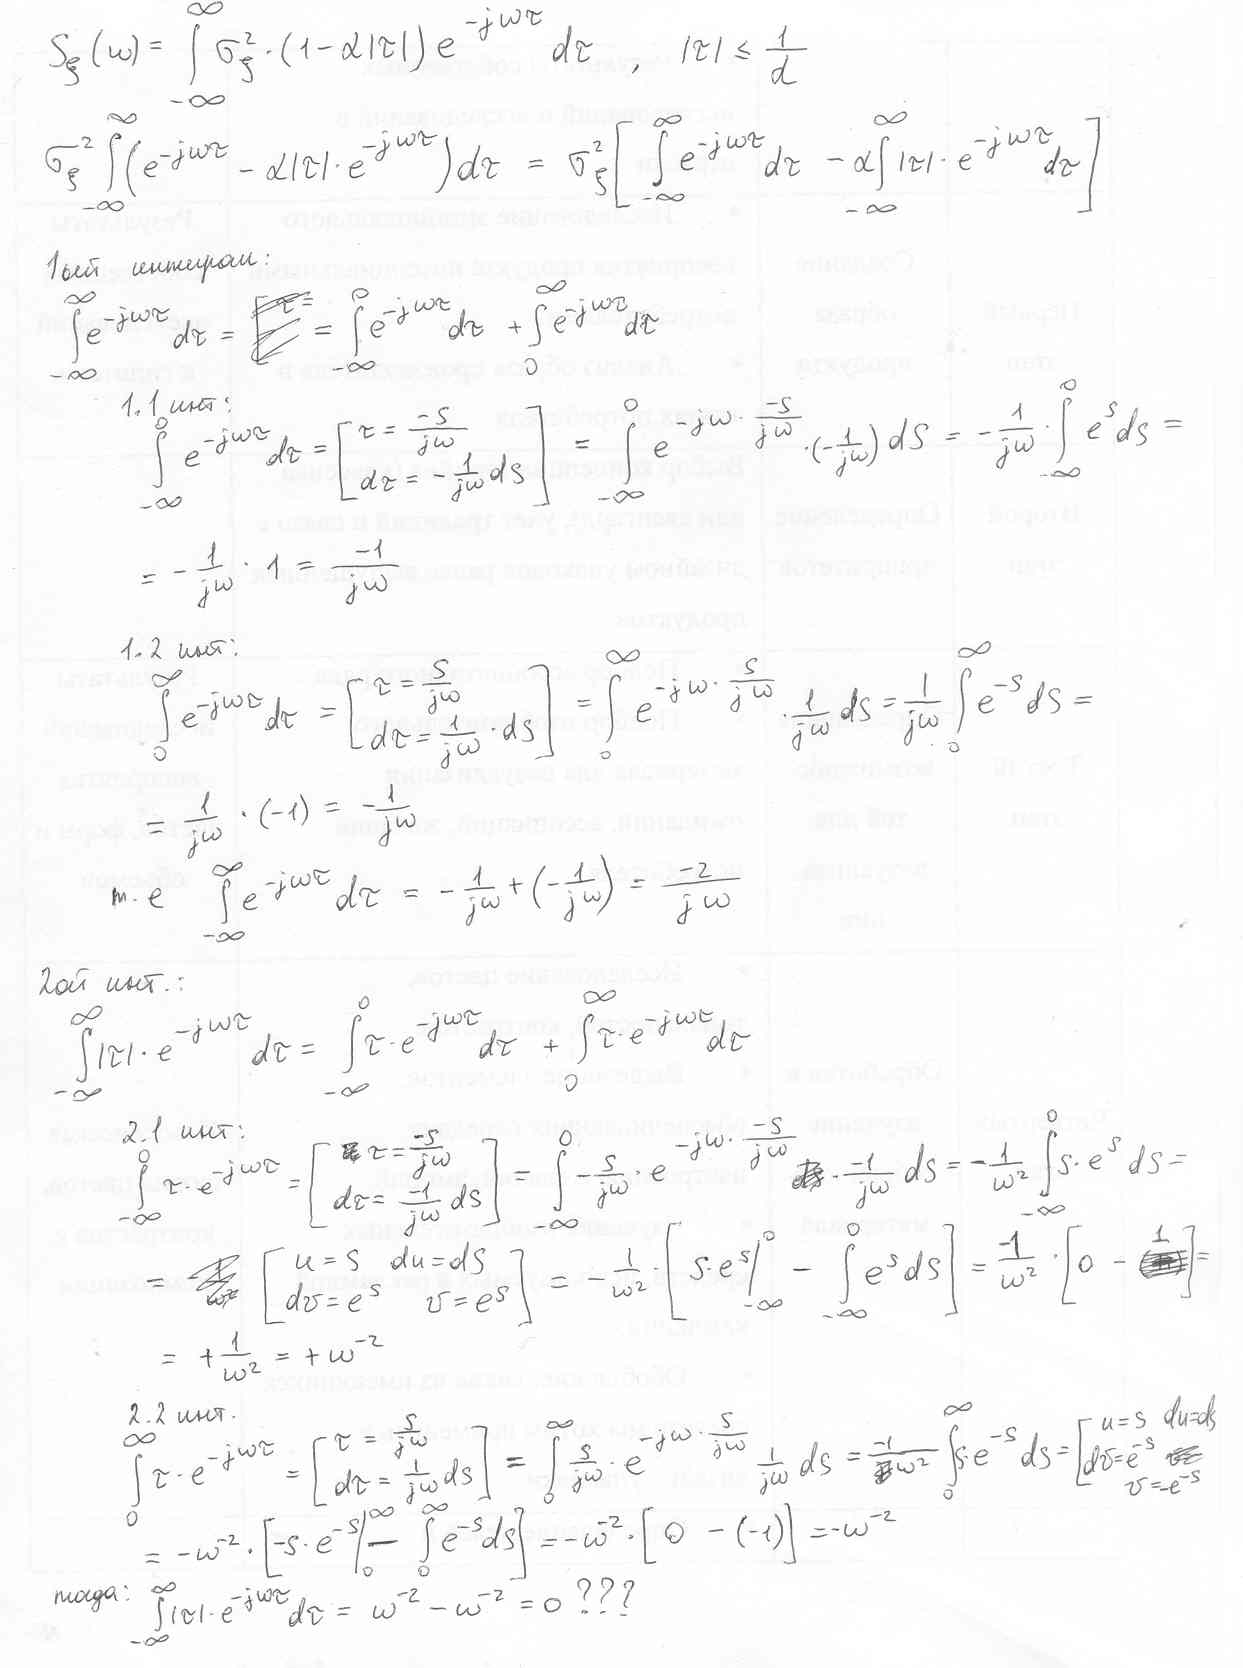 S_ξ(ω) = ∫_{-∞}^{∞} σ_ξ² · (1 - α|τ|) e^{-jωτ} dτ , |τ| ≤ 1/α
σ_ξ² ∫_{-∞}^{∞} (e^{-jωτ} - α|τ| · e^{-jωτ}) dτ = σ_ξ² [ ∫_{-∞}^{∞} e^{-jωτ} dτ - α ∫_{-∞}^{∞} |τ| · e^{-jωτ} dτ ]
1ый интеграл:
∫_{-∞}^{∞} e^{-jωτ} dτ = = ∫_{-∞}^{0} e^{-jωτ} dτ + ∫_{0}^{∞} e^{-jωτ} dτ
1.1 инт:
∫_{-∞}^{0} e^{-jωτ} dτ = [ τ = -s/jω dτ = -1/jω ds ] = ∫_{-∞}^{0} e^{-jω · -s/jω} · (-1/jω) ds = -1/jω · ∫_{-∞}^{0} e^s ds =
= -1/jω · 1 = -1/jω
1.2 инт:
∫_{0}^{∞} e^{-jωτ} dτ = [ τ = s/jω dτ = 1/jω · ds ] = ∫_{0}^{∞} e^{-jω · s/jω} · 1/jω ds = 1/jω ∫_{0}^{∞} e^{-s} ds =
= 1/jω · (-1) = -1/jω
т.е ∫_{-∞}^{∞} e^{-jωτ} dτ = -1/jω + (-1/jω) = -2/jω
2ой инт.:
∫_{-∞}^{∞} |τ| · e^{-jωτ} dτ = ∫_{-∞}^{0} τ · e^{-jωτ} dτ + ∫_{0}^{∞} τ · e^{-jωτ} dτ
2.1 инт:
∫_{-∞}^{0} τ · e^{-jωτ} = [ τ = -s/jω dτ = -1/jω ds ] = ∫_{-∞}^{0} -s/jω · e^{-jω · -s/jω} · -1/jω ds = -1/ω² ∫_{-∞}^{0} s · e^s ds =
= [ u = s du = ds dv = e^s v = e^s ] = -1/ω² · [ s · e^s |_{-∞}^{0} - ∫_{-∞}^{0} e^s ds ] = -1/ω² · [ 0 - 1 ] =
= +1/ω² = +ω^{-2}
2.2 инт.
∫_{0}^{∞} τ · e^{-jωτ} = [ τ = s/jω dτ = 1/jω ds ] = ∫_{0}^{∞} s/jω · e^{-jω · s/jω} 1/jω ds = -1/ω² ∫_{0}^{∞} s · e^{-s} ds = [ u = s du = ds dv = e^{-s} v = -e^{-s}
= -ω^{-2} · [ -s · e^{-s} |_{0}^{∞} - ∫_{0}^{∞} e^{-s} ds ] = -ω^{-2} · [ 0 - (-1) ] = -ω^{-2}
тада: ∫_{-∞}^{∞} |τ| · e^{-jωτ} dτ = ω^{-2} - ω^{-2} = 0 ???